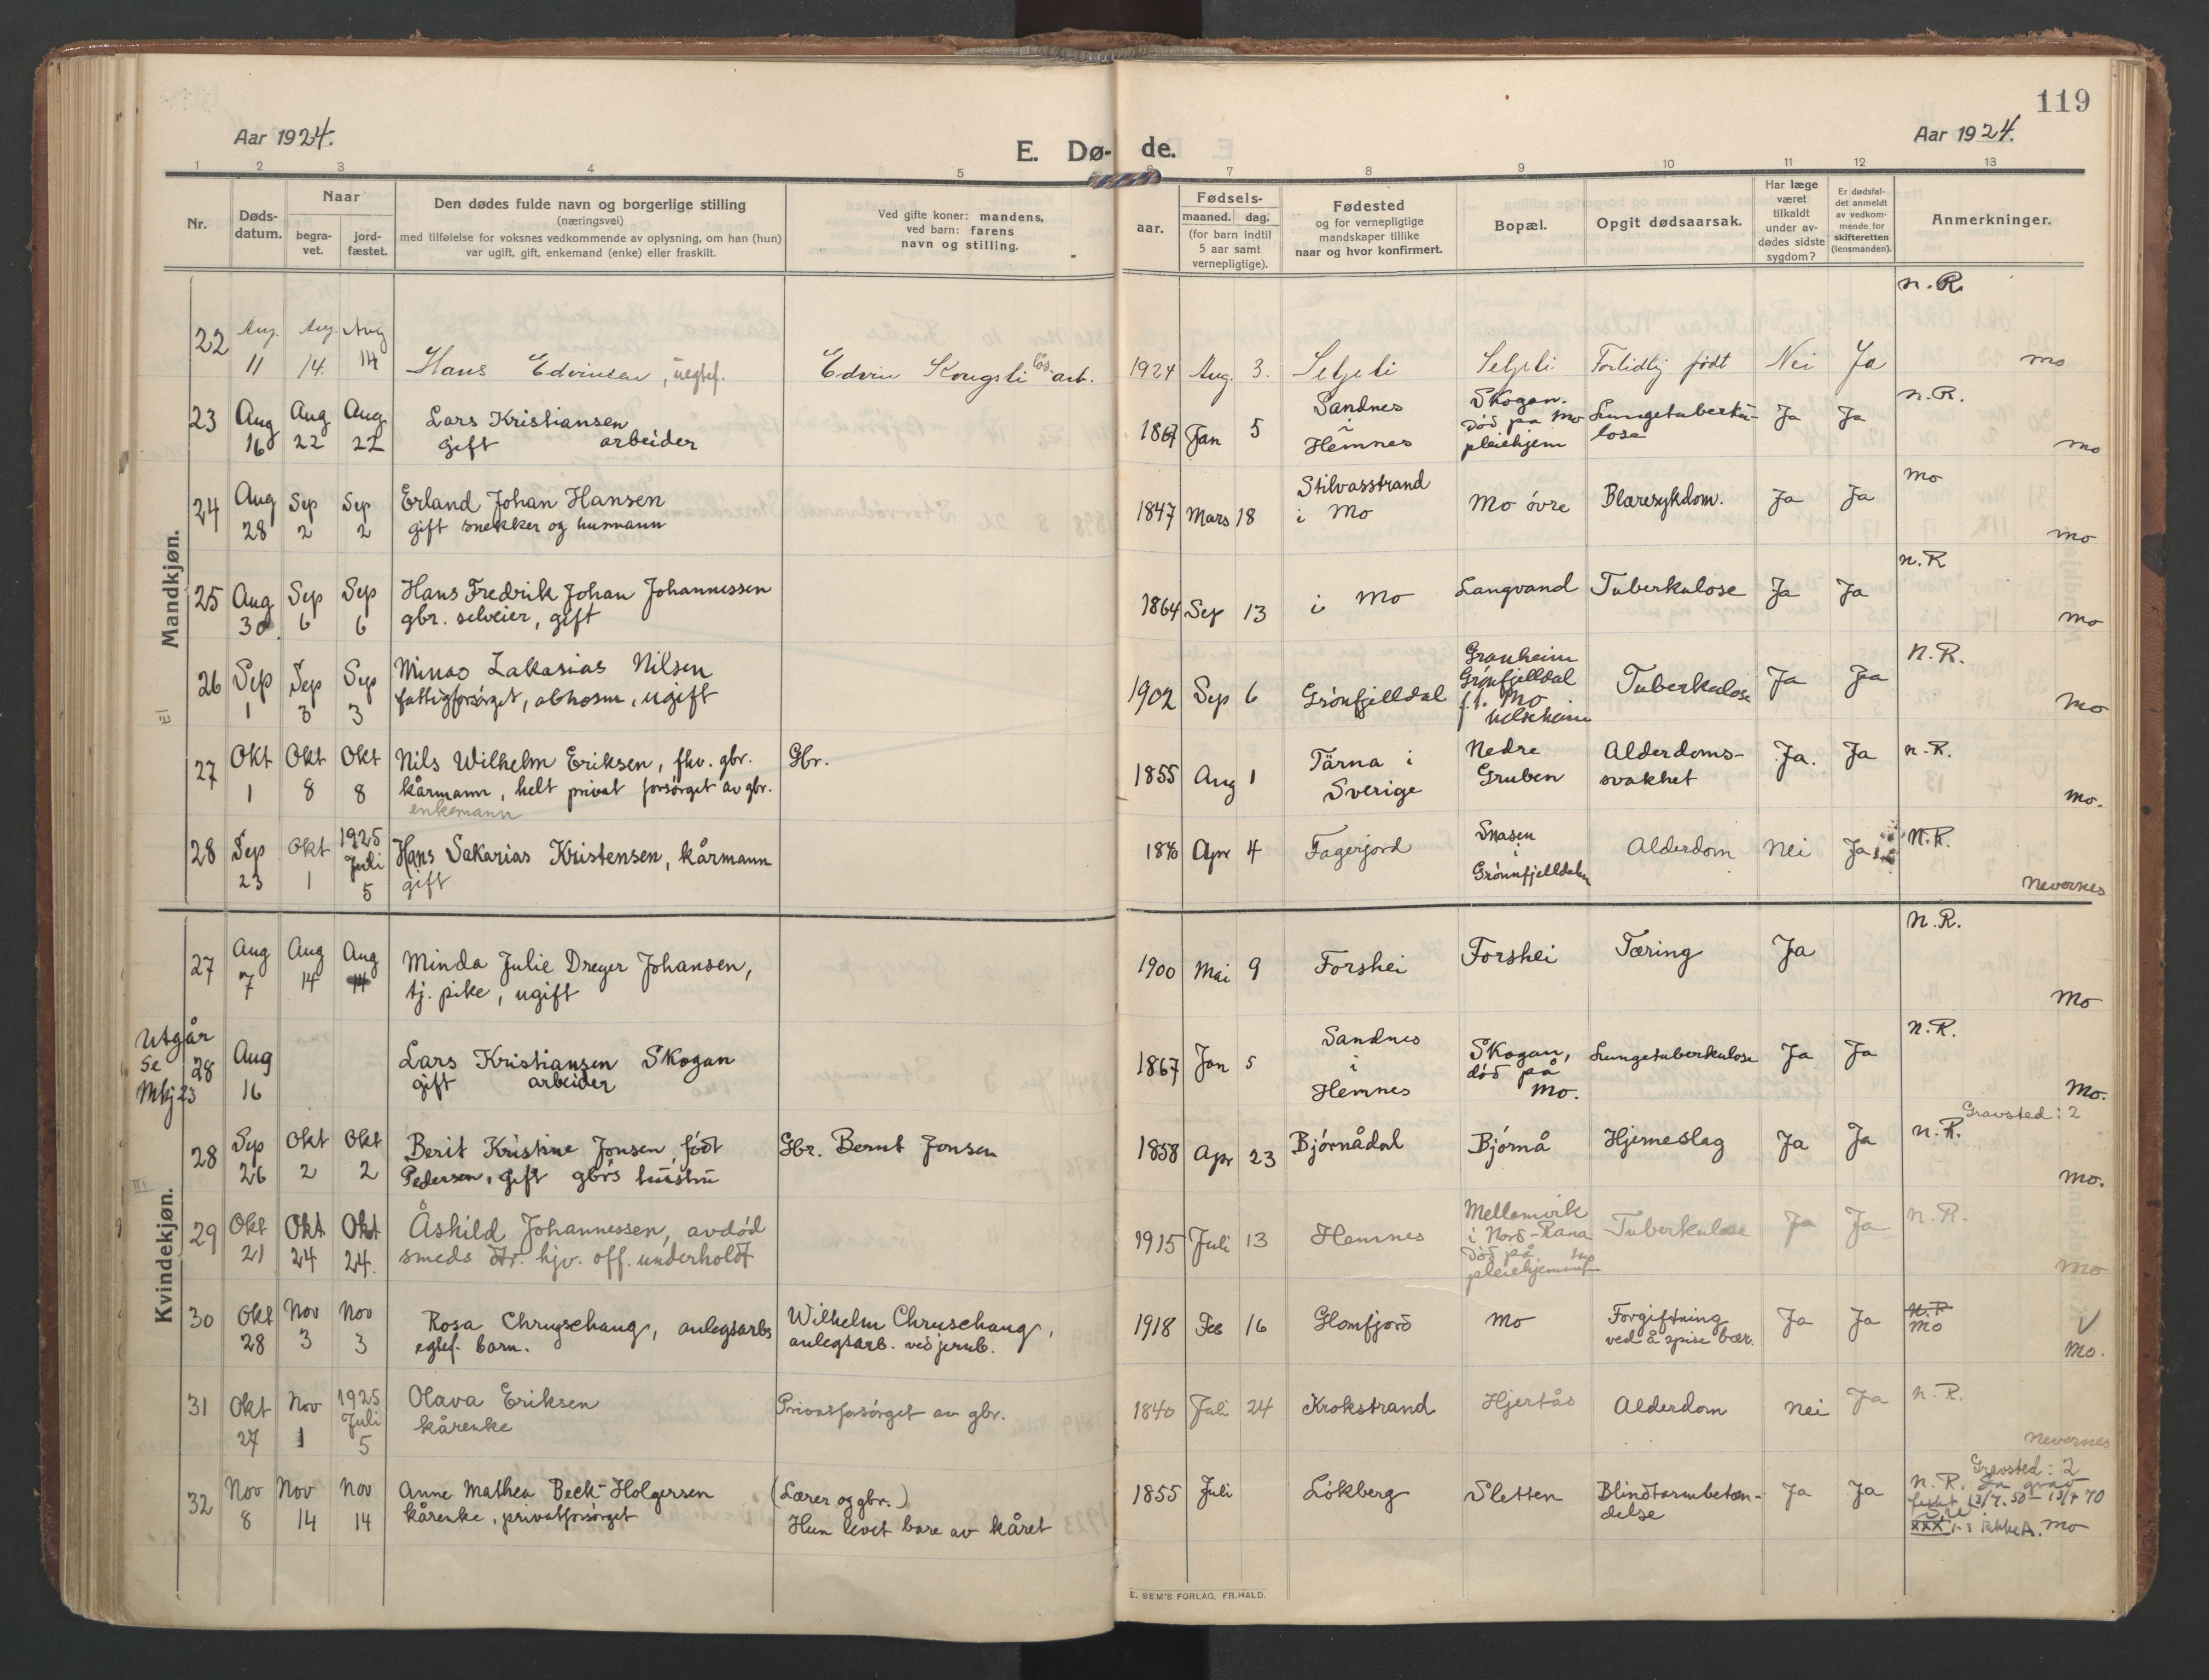 119
Aar 1924.
E. Dø- de.
Aar 1924.
1 2 3 4 5 6 7 8 9 10 11 12 13
Nr.
Døds-
datum.
Naar
begra-
vet.
jord-
fæstet.
Den dødes fulde navn og borgerlige stilling
(næringsvei)
med tilføielse for voksnes vedkommende av oplysning, om han (hun)
var ugift, gift, enkemand (enke) eller fraskilt.
Ved gifte koner: mandens,
ved barn: farens
navn og stilling.
Fødsels-
aar.
maaned. dag.
(for barn indtil
5 aar samt
vernepligtige).
Fødested
og for vernepligtige
mandskaper tillike
naar og hvor konfirmert.
Bopæl.
Opgit dødsaarsak.
Har læge
været
tilkaldt
under av-
dødes sidste
sygdom?
Er dødsfal-
det anmeldt
av vedkom-
mende for
skifteretten
(lensmanden).
Anmerkninger.
Mandkjøn.
n. R.
22 Aug. Aug. Aug
11 14. 14 Hans Edvinsen, uegtef. Edvin Kongsli løs arb. 1924 Aug. 3. Seljeli Seljeli Fortidlig født Nei Ja mo
23 Aug Aug Aug Lars Kristiansen 1867 Jan 5 Sandnes Skogan. Lungetuberku- Ja Ja n.R.
16 22 22 gift arbeider i Hemnes Død på Mo pleiehjem lose mo
24 Aug Sep Sep Erland Johan Hansen 1847 Mars 18 Stilvasstrand Mo övre Blæresykdom. Ja Ja mo
28 2 2 gift snekker og husmann i Mo mo
25 Aug Sep Sep Hans Fredrik Johan Johannessen 1864 Sep 13 i Mo Langvand Tuberkulose Ja Ja n.R
30. 6 6 gbr. selveier, gift mo
26 Sep Sep Sep Zakarias Nilsen 1902 Sep 6 Grönfjelldal Granheim Tuberkulose Ja Ja N.R.
1 3 3 fattigforsörget, ugift Grönfjelldal f.t. Mo helseheim Mo
27 Okt Okt Okt Nils Wilhelm Eriksen, fhv. gbr. Gbr. 1855 Aug 1 Tärna i Nedre Alderdoms- Ja. Ja n.R.
1 8 8 kårmann, helt privat forsörget av gbr. Sverige Gruben svakhet mo.
enkemann
28 Sep Okt 1925 Hans Sakarias Kristensen, kårmann Apr 4 Fagerjord Snasen Alderdom Nei Ja N.R.
23 1 Juli 5 gift i Grönnfjelldalen Nevernes
Kvindekjøn.
27 Aug Aug Aug Minda Julie Dreyer Johansen, 1900 Mai 9 Forshei Forshei Tæring Ja N.R.
7 14 14 tj. pike, ugift Mo
Utgår
Se
Mkj 23
28 Aug Lars Kristiansen Skogan 1867 Jan 5 Sandnes Skogan, Lungetuberkulose Ja Ja n.R.
16 gift arbeider i Hemnes död på Mo. Mo.
Gravsted: 2
28 Sep Okt Okt Berit Kristine Jonsen, födt Gbr. Bernt Jonsen 1858 Apr 23 Björnådal Björnå Hjerneslag Ja Ja n.R.
26 2 2 Pedersen, gift gbr's hustru mo.
29 Okt Okt Okt Åshild Johannessen, avdöd 1915 Juli 13 Hemnes Mellomvik Tuberkulose Ja Ja n.R.
21 24 24. smeds dtr. hjv. off. underholdt i Nord-Rana Död på Mo pleiehjemmet Mo
30 Okt Nov Nov Rosa Chruschaug, anlegsarbs Wilhelm Chruschaug, 1918 Feb 16 Glomfjord Mo Forgiftning Ja Ja n.R
28 3 3 egtef. barn. anlegsarb. ved jernb. ved å spise bær. Mo Mo.
31 Okt Nov 1925 Olava Eriksen Privatforsörget av gbr. 1840 Juli 24 Krokstrand Hjertås Alderdom Nei Ja n.R.
27 1 Juli 5 kårenke Nevernes
Gravsted: 2
32 Nov Nov Nov Anne Mathea Beck-Holgersen (Lærer og gbr.) 1855 Juli Lökberg Sletten Blindtarmbeten- Ja Ja n.R.
8 14 14 kårenke, privatforsörget Hun levet bare av kåret delse
festet 13/7.50 - 13/7 70
XXX Mo
E. SEM'S FORLAG, FR.HALD.